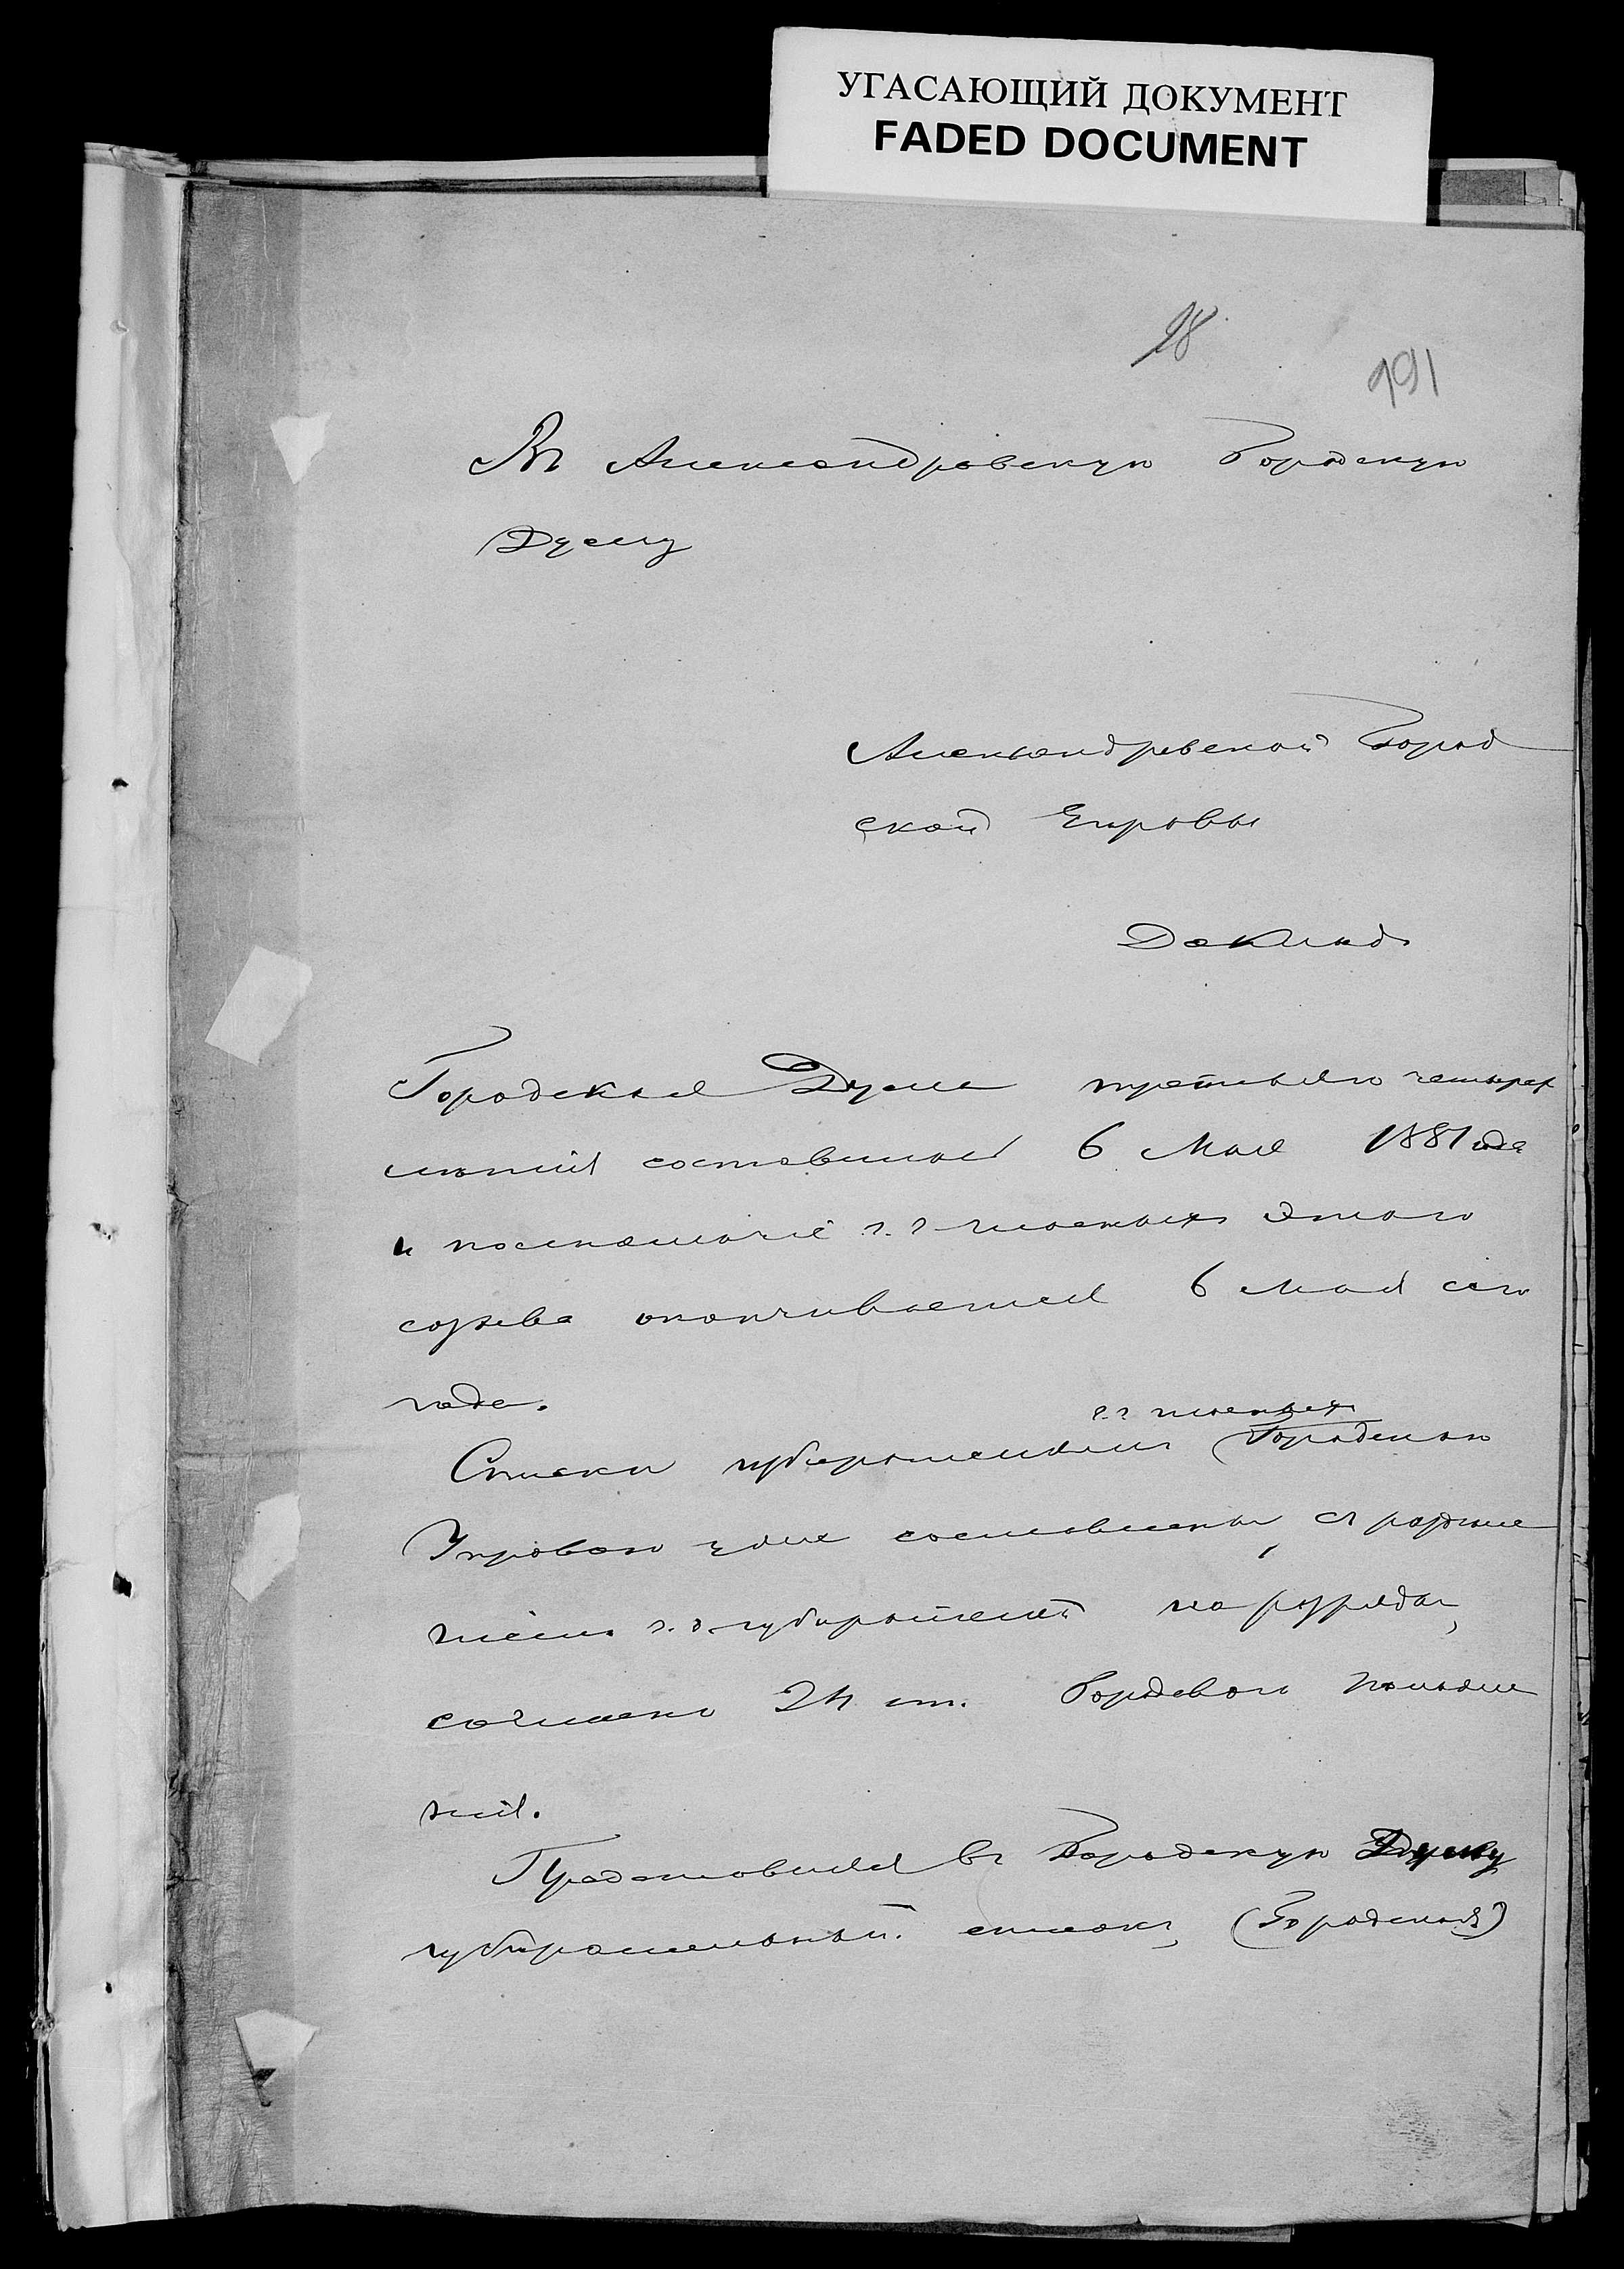 УГАСАЮЩИЙ ДОКУМЕНТ
FADED DOCUMENT
28
191
Въ Александровскую Городскую
Думу
Александровской Город
ской Управы
Докладъ
Городская Дума третьяго четырех
лѣтія составилась 6 Мая 1881 года
и полномочіе г.г гласныхъ этого
созыва оканчивается 6 мая сего
года.
г.г гласныхъ
Списки избирателямъ Городскою
Управою уже составлены, съ раздѣле
ніемъ г.г. избирателей на разряды,
согласно 24 ст. Городоваго Положе
нія.
Представляя въ Городскую Думу
избирательный списокъ, (Городская)